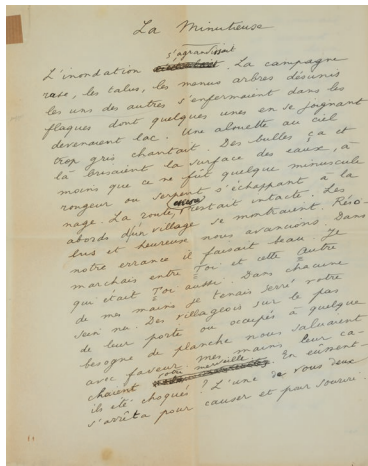 La Minutieuse
s'agrandissait
L'inondation . La campagne
rase, les talus, les menus arbres désunis
les uns des autres s'enfermaient dans les
flaques dont quelques unes en se joignant
devenaient lac. Une alouette au ciel
trop gris chantait. Des bulles çà et
là brisaient la surface des eaux, à
moins que ce ne fût quelque minuscule
rongeur ou serpent s'échappant à la
nage. La route, encore restait intacte. Les
abords d'un village se montraient. Réso-
lus et heureux nous avancions. Dans
notre errance il faisait beau. Je
marchais entre Toi et cette Autre
qui était Toi aussi. Dans chacune
de mes mains je tenais serré votre
sein nu. Des villageois sur le pas
de leur porte ou occupés à quelque
besogne de planche nous saluaient
avec faveur. Mes mains leur ca-
chaient votre merveille. En eussent-
ils été choqués? L'une de vous deux
s'arrêta pour causer et pour sourire.